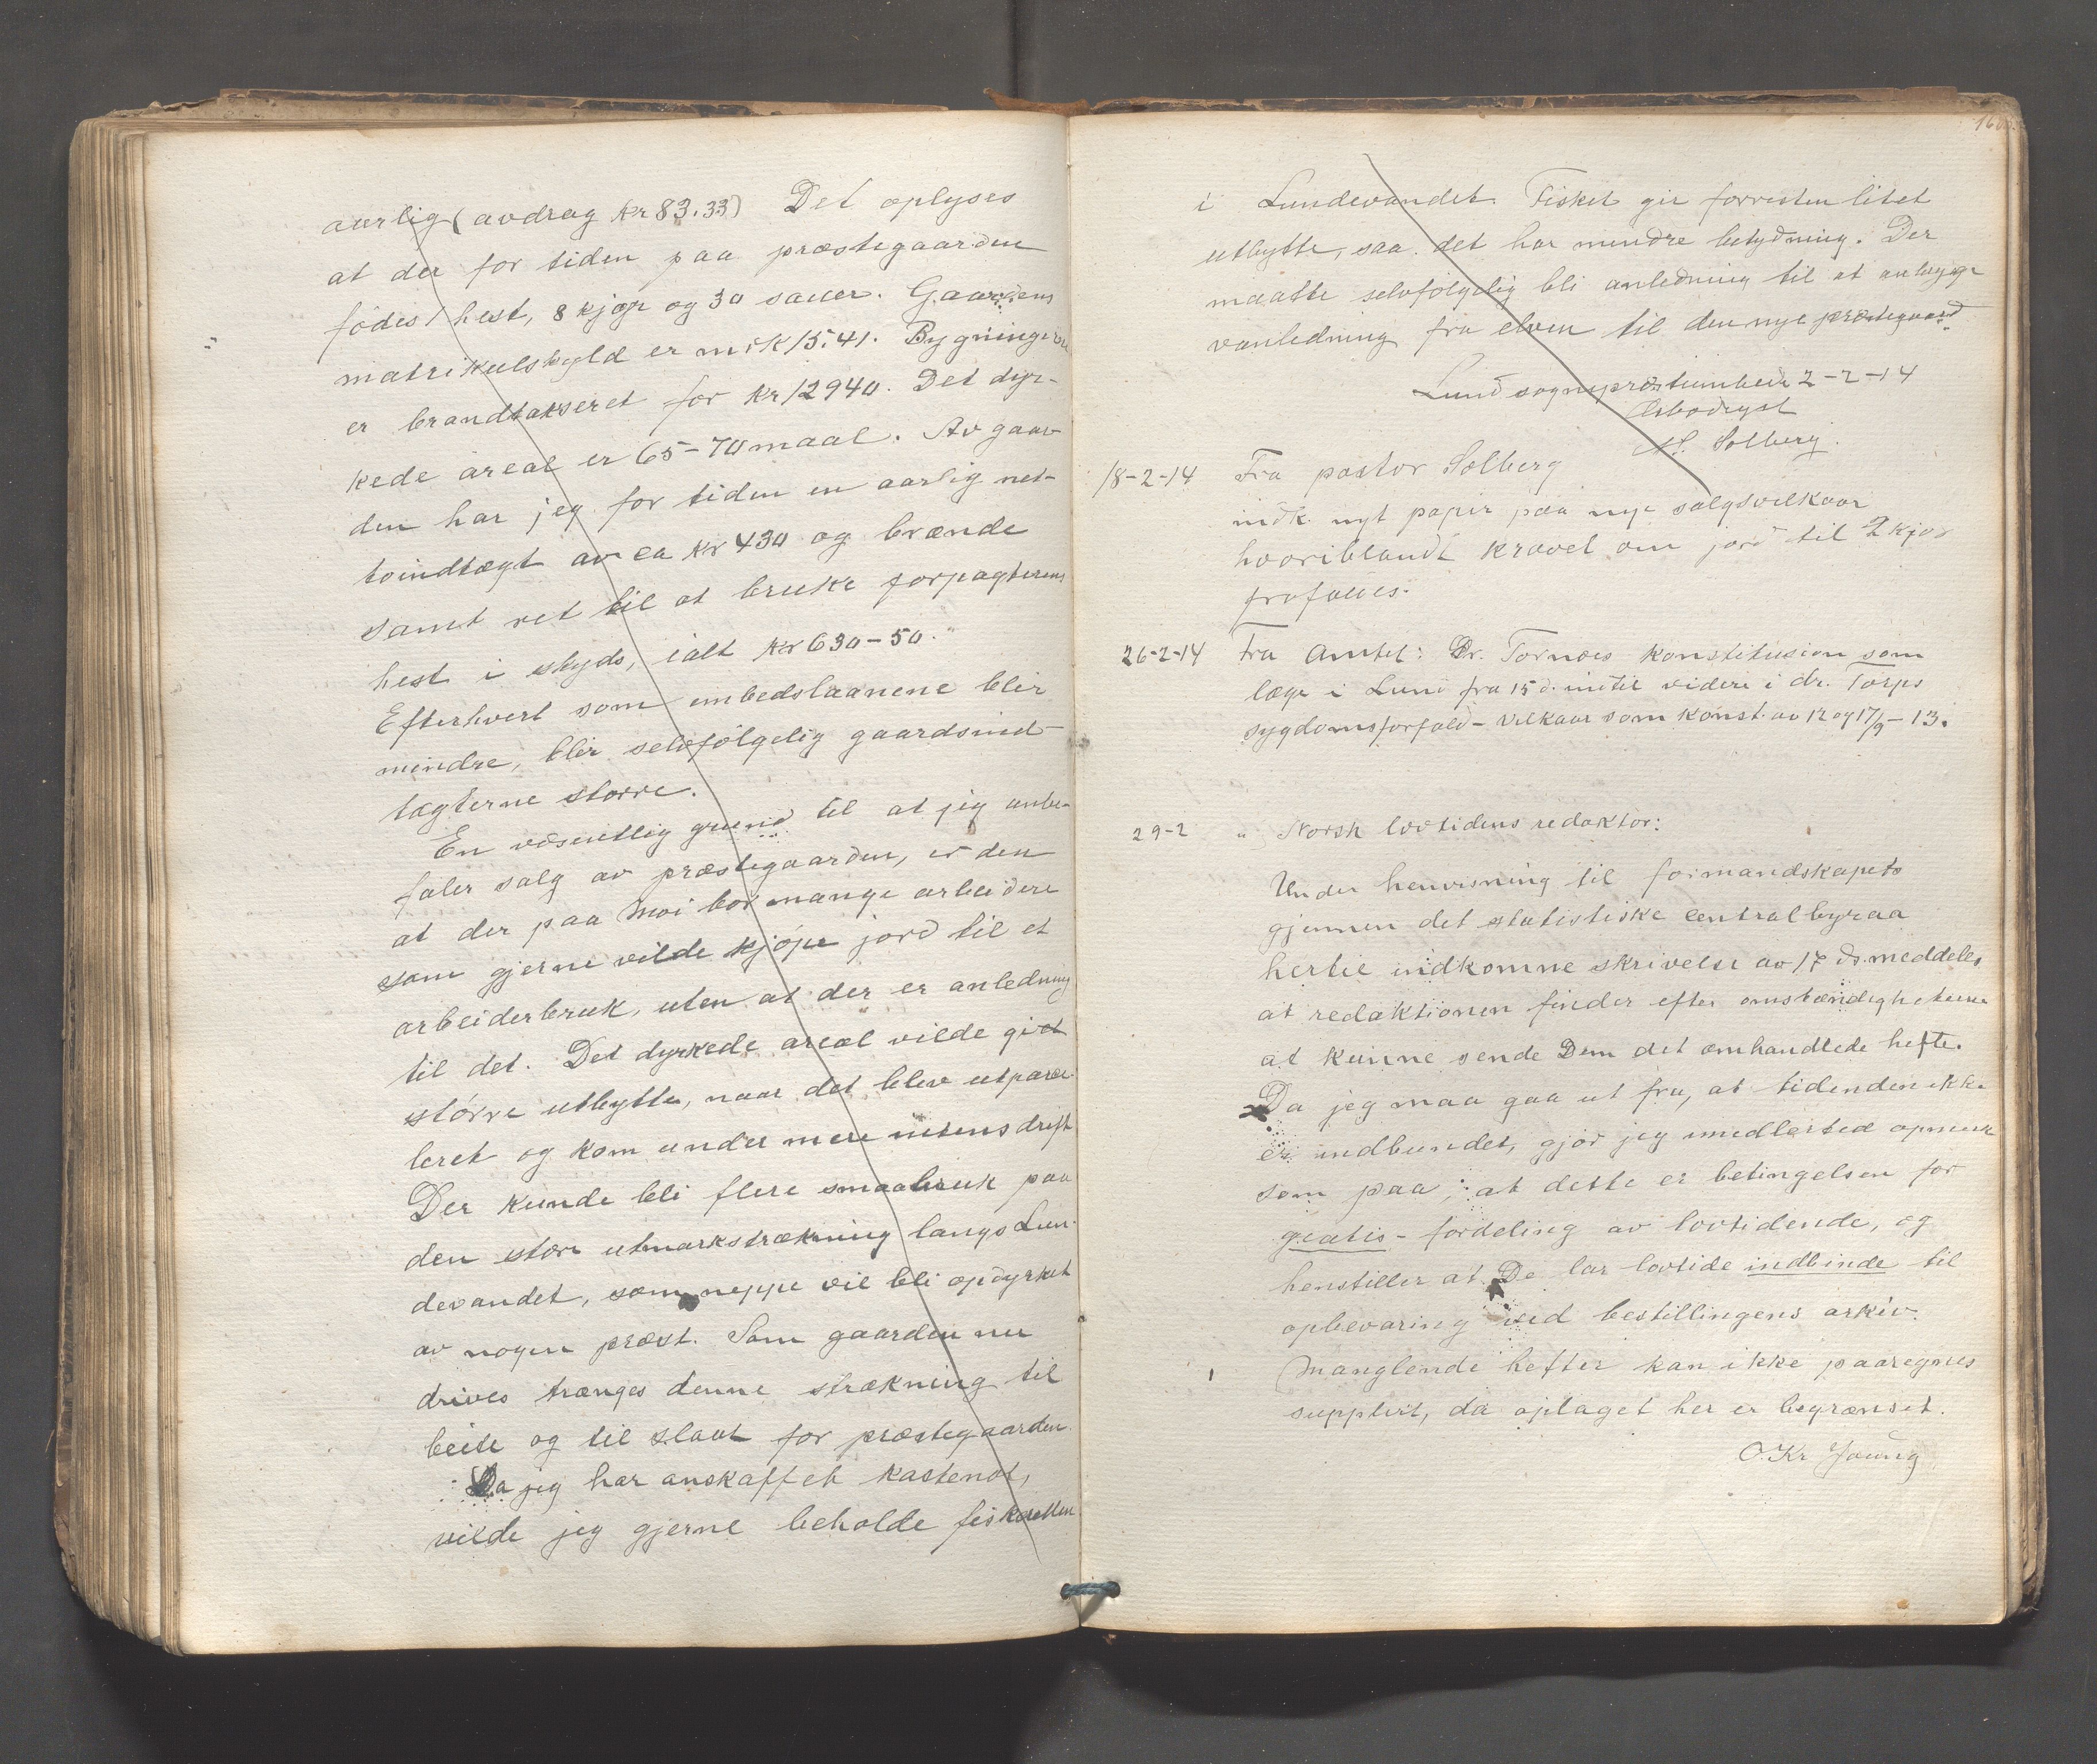 aarlig (avdrag kr 83.33) Det oplyses
at der for tiden paa præstegaarden
fødes 1 hest, 8 kjør og 30 sauer. Gaardens
matrikulskyld er mrk 15.41. Bygningerne
er brandtakseret for kr 12940. Det dyr-
kede areal er 65-70 maal. Av gaar-
den har jeg for tiden en aarlig net-
toindtægt av ca kr 430 og brænde
samt ret til at bruke forpagterens
hest i skyds, ialt kr 630-50.
Efterhvert som embedslaanene blir
mindre, blir selvfølgelig gaardsind-
tægterne større.
En væsentlig grund til at jeg anbe-
faler salg av præstegaarden, er den
at der paa Moi bor mange arbeidere
som gjerne vilde kjøpe jord til et
arbeiderbruk, uten at der er anledning
til det. Det dyrkede areal vilde gi et
større utbytte, naar det blev utparcel-
leret og kom under mere intens drift
Der kunde bli flere smaabruk paa
den store utmarkstrækning langs Lun-
devandet, som neppe vil bli opdyrket
av nogen præst. Som gaarden nu
drives trænges denne strækning til
beite og til slaat for præstegaarden.
Da jeg har anskaffet kastenot,
vilde jeg gjerne beholde fiskeretten
160
i Lundevandet. Fisket gir forresten litet
utbytte, saa det har mindre betydning. Der
maatte selvfølgelig bli anledning til at anlægge
vanledning fra elven til den nye præstegaard
Lund sogneprestembede 2-2-14
Ærbødigst
Solberg.
18-2-14 Fra pastor Solberg
indk. nyt papir paa nye salgsvilkaar
hvoriblandt kravet om jord til 2 kjør
frafalles.
26-2-14 Fra Amtet: Dr. Tornæs konstitusion som
læge i Lund fra 15 d. indtil videre i dr. Torps
sygdomsforfald - vilkaar som konst. av 12 og 17/9-13.
29-2 " Norsk lovtidens redaktør:
Under henvisning til formandskapets
gjennem det statistiske centralbyraa
hertil indkomne skrivelse av 17 ds. meddeles
at redaktionen finder efter omstændighetene
at kunne sende Dem det omhandlede hefte.
Da jeg maa gaa ut fra, at tidenden ikke
er indbundet, gjør jeg imidlertid opmerk
som paa, at dette er betingelsen for
gratis-fordeling av lovtidende, og
henstiller at De lar lovtide indbinde til
opbevaring ved bestillingens arkiv.
Manglende hefter kan ikke paaregnes
supplert, da oplaget her er begrænset.
O. Kr Young